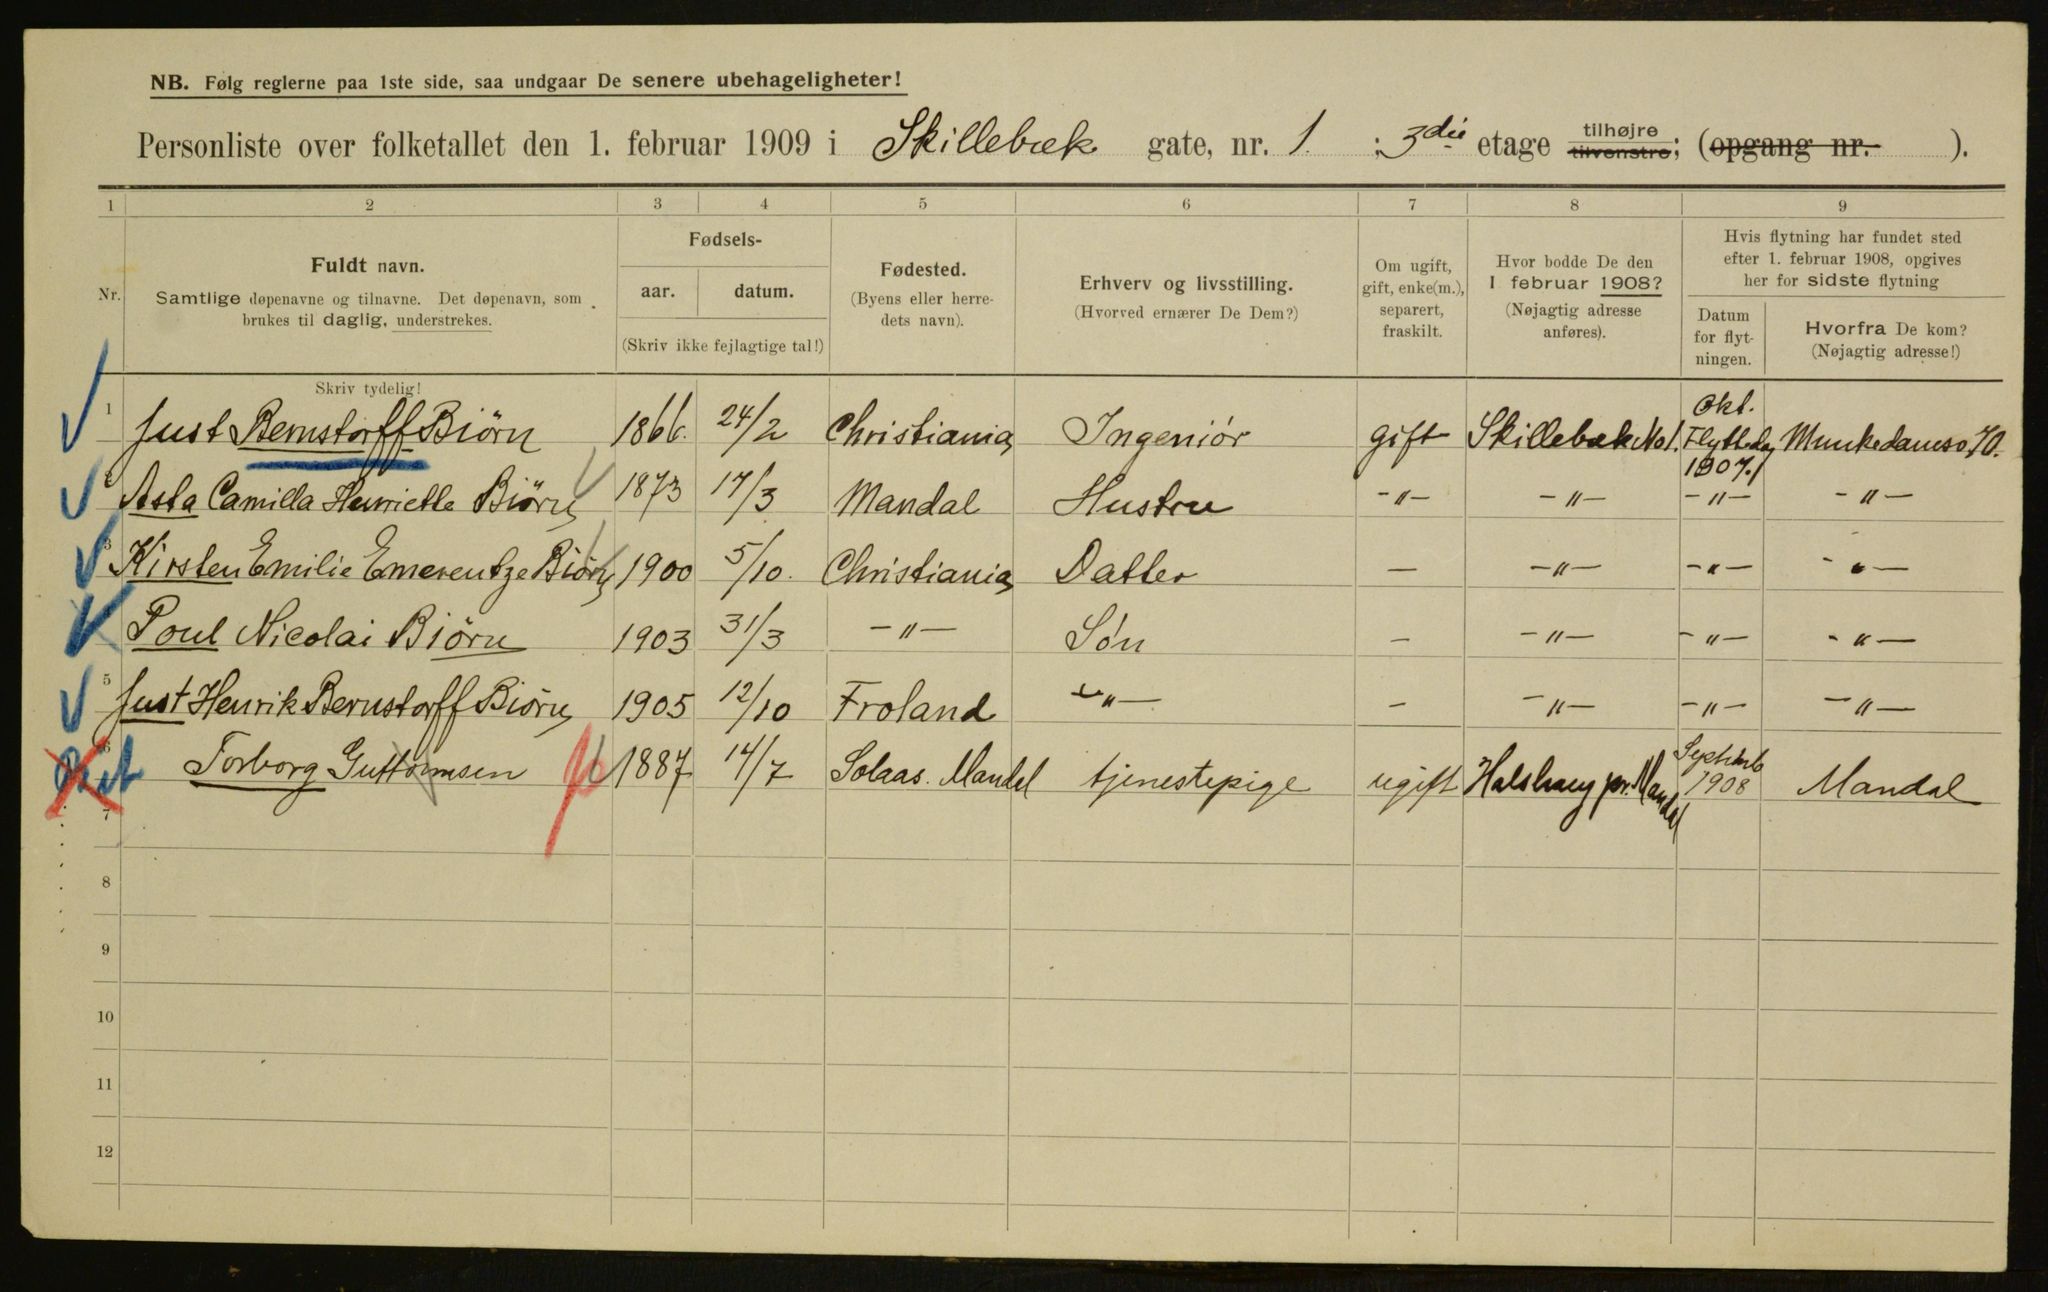 NB. Følg reglerne paa 1ste side, saa undgaar De senere ubehageligheter!
Personliste over folketallet den 1. februar 1909 i Skillebæk gate, nr. 1 ; 3die etage tilhøjre tilvenstre; (opgang nr. ).
1 2 3 4 5 6 7 8 9
Nr.
Fuldt navn.
Samtlige døpenavne og tilnavne. Det døpenavn, som
brukes til daglig, understrekes.
Skriv tydelig!
Fødsels-
aar. datum.
(Skriv ikke fejlagtige tal!)
Fødested.
(Byens eller herre-
dets navn).
Erhverv og livsstilling.
(Hvorved ernærer De Dem?)
Om ugift,
gift, enke(m.),
separert,
fraskilt.
Hvor bodde De den
1 februar 1908?
(Nøjagtig adresse
anføres).
Hvis flytning har fundet sted
efter 1. februar 1908, opgives
her for sidste flytning
Datum
for flyt-
ningen.
Hvorfra De kom?
(Nøjagtig adresse!)
1 Just Bernstorff Biörn 1866. 24/2 Christiania Ingeniör gift Skillebæk No 1. Okt. Flyttedag 1907. Munkedamsv. 70.
2 Asta Camilla Henriette Biörn 1873 17/3 Mandal Hustru -"- -"- -"- -"-
3 Kirsten Emilie Emerentze Biörn 1900 5/10. Christiania Datter — -"- -"- -"-
Poul Nicolai Biörn 1903 31/3 -"- Sön - -"- -"- -"-
5 Just Henrik Bernstorff Biörn 1905 12/10 Froland -"- - -"- -"- -"-
6 Torborg Guttormsen 1887 14/7 Solaas. Mandal tjenestepige ugift Halshaug pr. Mandal Septemb 1908 Mandal
7
8
9
10
11
12